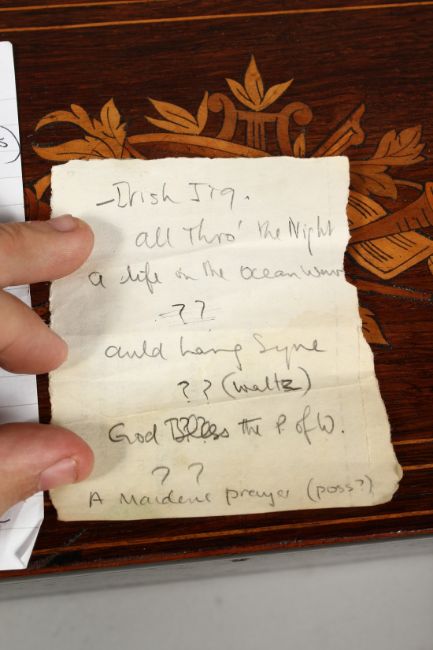 - Irish Jig.
all Thro' the Night
a life on the ocean wave
??
auld Lang Syne
?? (waltz)
God Bless the P. of W.
? ?
A Maidens prayer (poss?)
s)